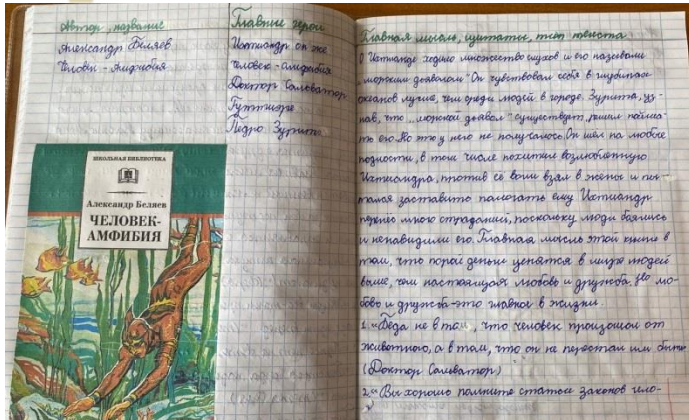 Автор, название
Александр Беляев
Человек-Амфибия
Главные герои
Ихтиандр он же
человек-амфибия
Доктор Сальватор
Гуттиэре
Педро Зурита
ШКОЛЬНАЯ БИБЛИОТЕКА
Александр Беляев
ЧЕЛОВЕК-
АМФИБИЯ
Главная мысль, цитаты, тип текста
О Ихтиандре ходило множество слухов и его называли
„морским дьяволом“ Он чувствовал себя в глубинах
океанов лучше, чем среди людей в городе. Зурита, уз-
нав, что „морской дьявол“ существует, решил пойма-
ть его. Но это у него не получалось. Он шел на любые
подлости, в том числе похитил возлюбленную
Ихтиандра, против её воли взял в жены и пы-
тался заставить помогать ему Ихтиандр
перенес много страданий, поскольку люди боялись
и ненавидили его. Главная мысль этой книги в
том, что порой деньги ценятся в мире людей
выше, чем настоящая любовь и дружба. Но лю-
бовь и дружба-это главное в жизни.
1. „Беда не в том, что человек произошел от
животного, а в том, что он не перестал им быть
(Доктор Сальватор)
2. „Вы хорошо помните статьи законов чело-